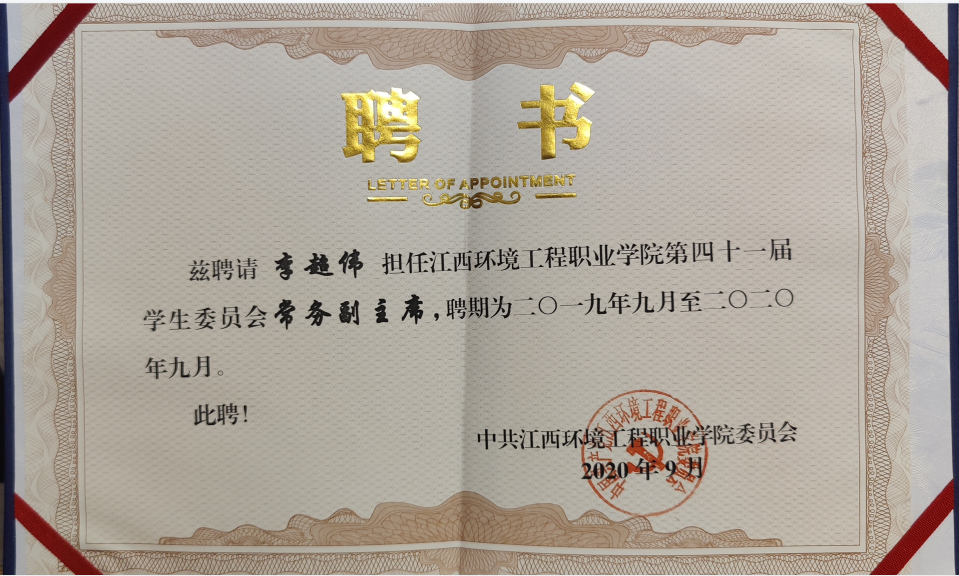 聘 书
LETTER OF APPOINTMENT
兹聘请 李超伟 担任江西环境工程职业学院第四十一届
学生委员会常务副主席，聘期为二〇一九年九月至二〇二〇
年九月。
此聘！
中共江西环境工程职业学院委员会
2020 年 9 月
中国共产党江西环境工程职业学院委员会